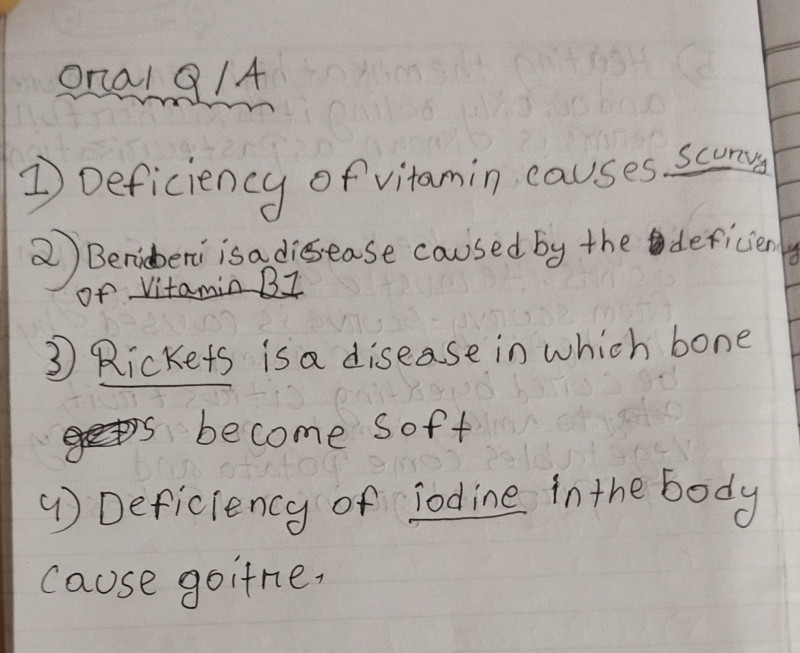 Oral Q/A
1) Deficiency of vitamin causes scurvy
2) Beriberi is a disease caused by the deficiency
of Vitamin B1
3) Rickets is a disease in which bone
become soft
4) Deficiency of iodine in the body
cause goitre.